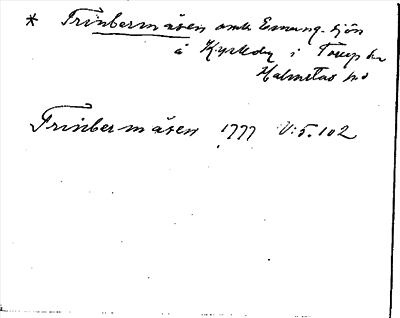 * Trinbermåsen omkr Esmang-sjön
å Kyrkeby i Torup sn
Halmstad hd
Trinbermåsen 1777 V:5.102